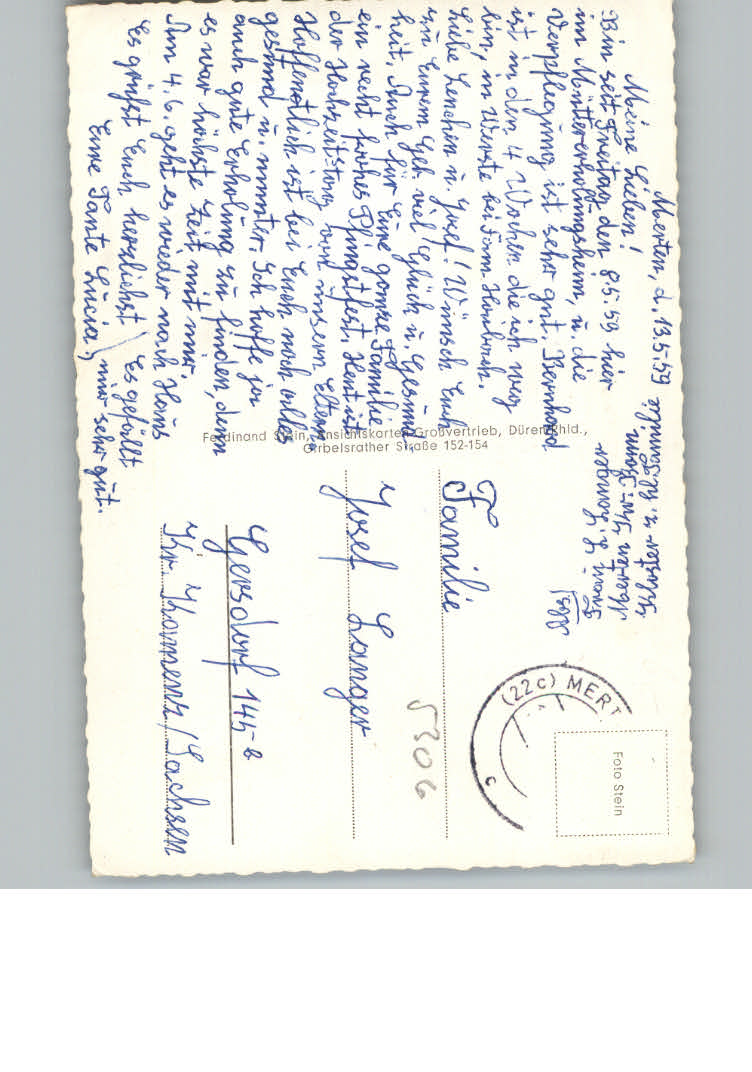 Merten, d. 13.5.59
Meine Lieben!
Bin seit Freitag den 8.5.59 hier
im Müttererholungsheim, u. die
Verpflegung ist sehr gut. Bernhard
ist in den 4 Wochen die ich weg
bin, in Werste bei Fam. Hornbach.
Liebe Lenchen u. Josef! Wünsch Euch
zu Eurem Geb. viel Glück u. Gesund
heit. Auch für Eure ganze Familie
ein recht frohes Pfingstfest. Heut ist
der Hochzeitstag von unsern Eltern
Hoffentlich ist bei Euch noch alles
gesund u. munter. Ich hoffe ja
auch gute Erholung zu finden, denn
es war höchste Zeit mit mir.
Am 4.6. geht es wieder nach Haus
Es grüßt Euch herzlichst
Eure Tante Lucia
Es gefällt
mir sehr gut.
Ferdinand Stein, Ansichtskarten-Großvertrieb, Düren/Rhld.,
Girbelsrather Straße 152-154
Kloster u. Familie
Merten
Langer
Foto Stein
(22c) MERT
c
Familie
5306
Josef Langer
Gersdorf 144 b
Kr. Kamenz/Sachsen